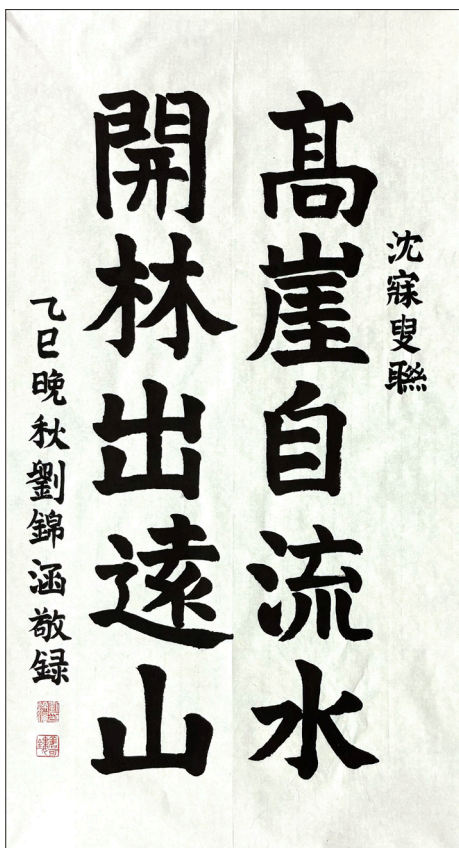 沈寐叟聯
髙崖自流水
開林出遠山
乙巳晚秋劉錦涵敬録